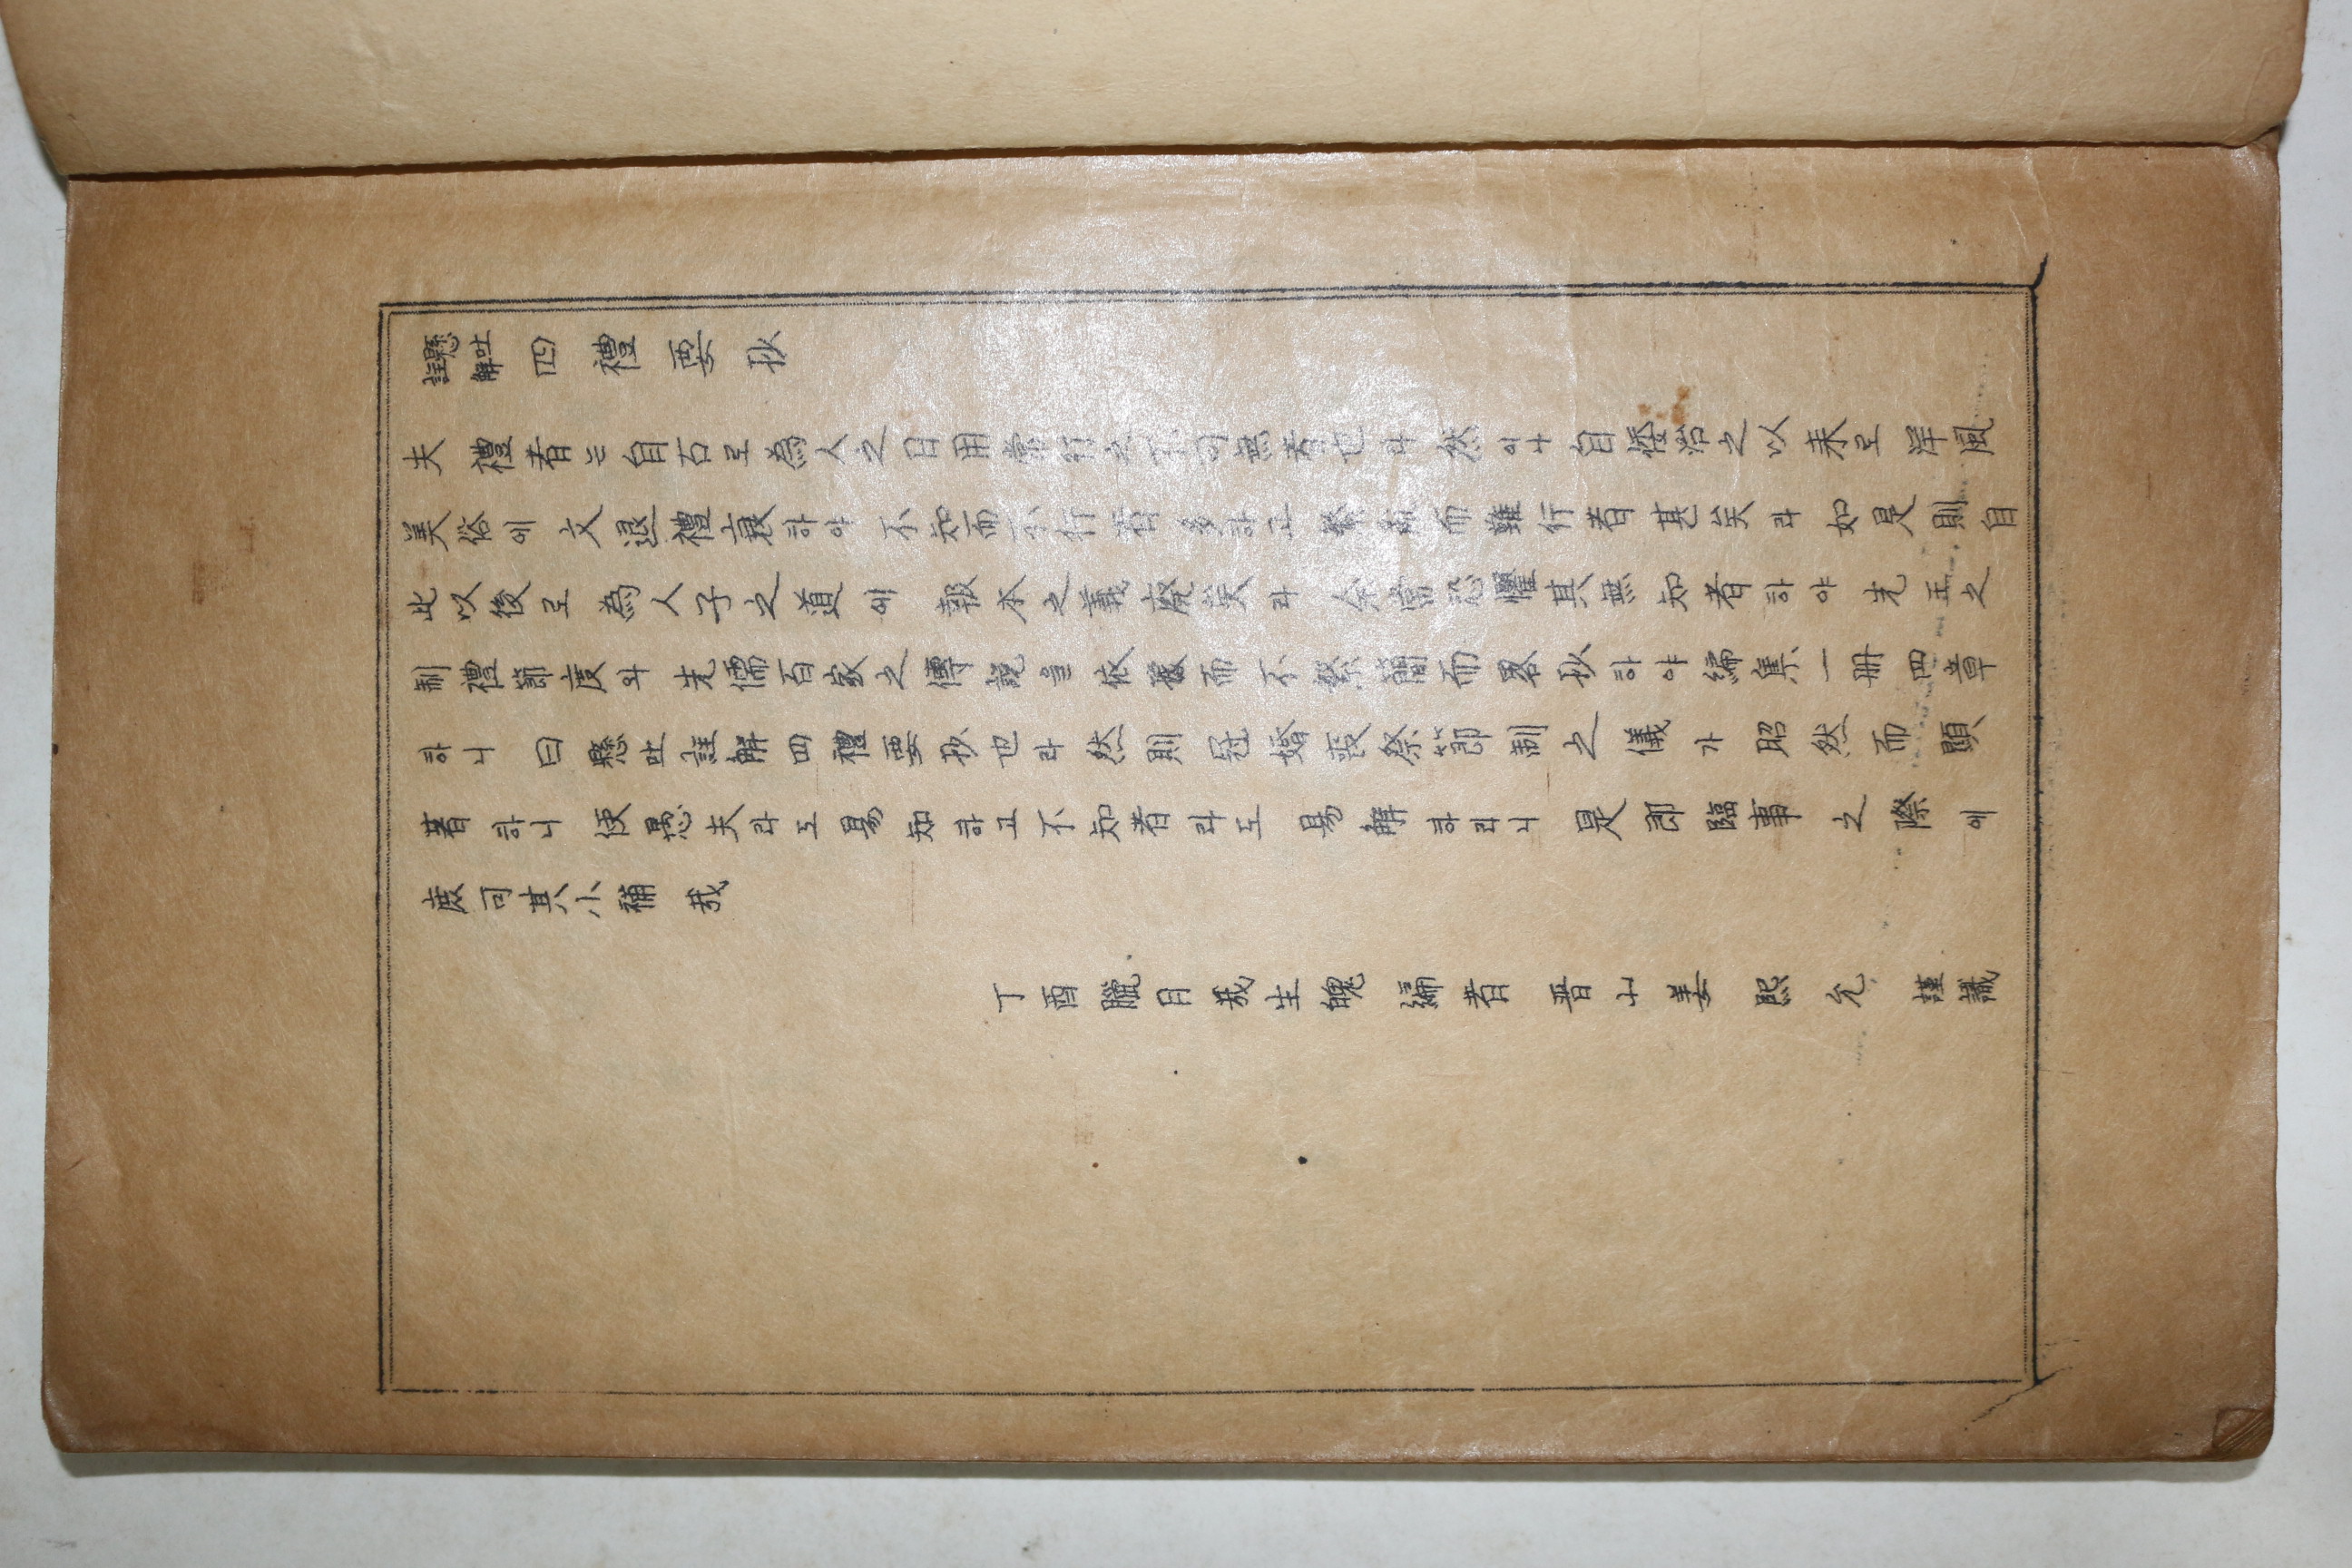 懸吐註解 四禮要抄
夫禮者는 自古로 為人之日用常行之不可無者也라 然이나 自倭治之以来로 洋風
美俗에 文退禮衰하야 不知而不行者多하고 繁亂而難行者甚矣라 如是則自
此以後로 為人子之道에 報本之義廢矣라 余常恐懼其無知者하야 先正之
制禮節度와 先儒百家之傳說을 依據而不繁簡而畧抄하야 編集一冊四章
하니 曰懸吐註解四禮要抄也라 然則冠婚喪祭節制之儀가 昭然而顯
著하니 使愚夫라도 易知하고 不知者라도 易解하리니 是即臨事之際에
庶可其小補哉
丁酉臘月哉生魄 編者 晋山姜熙允 謹識